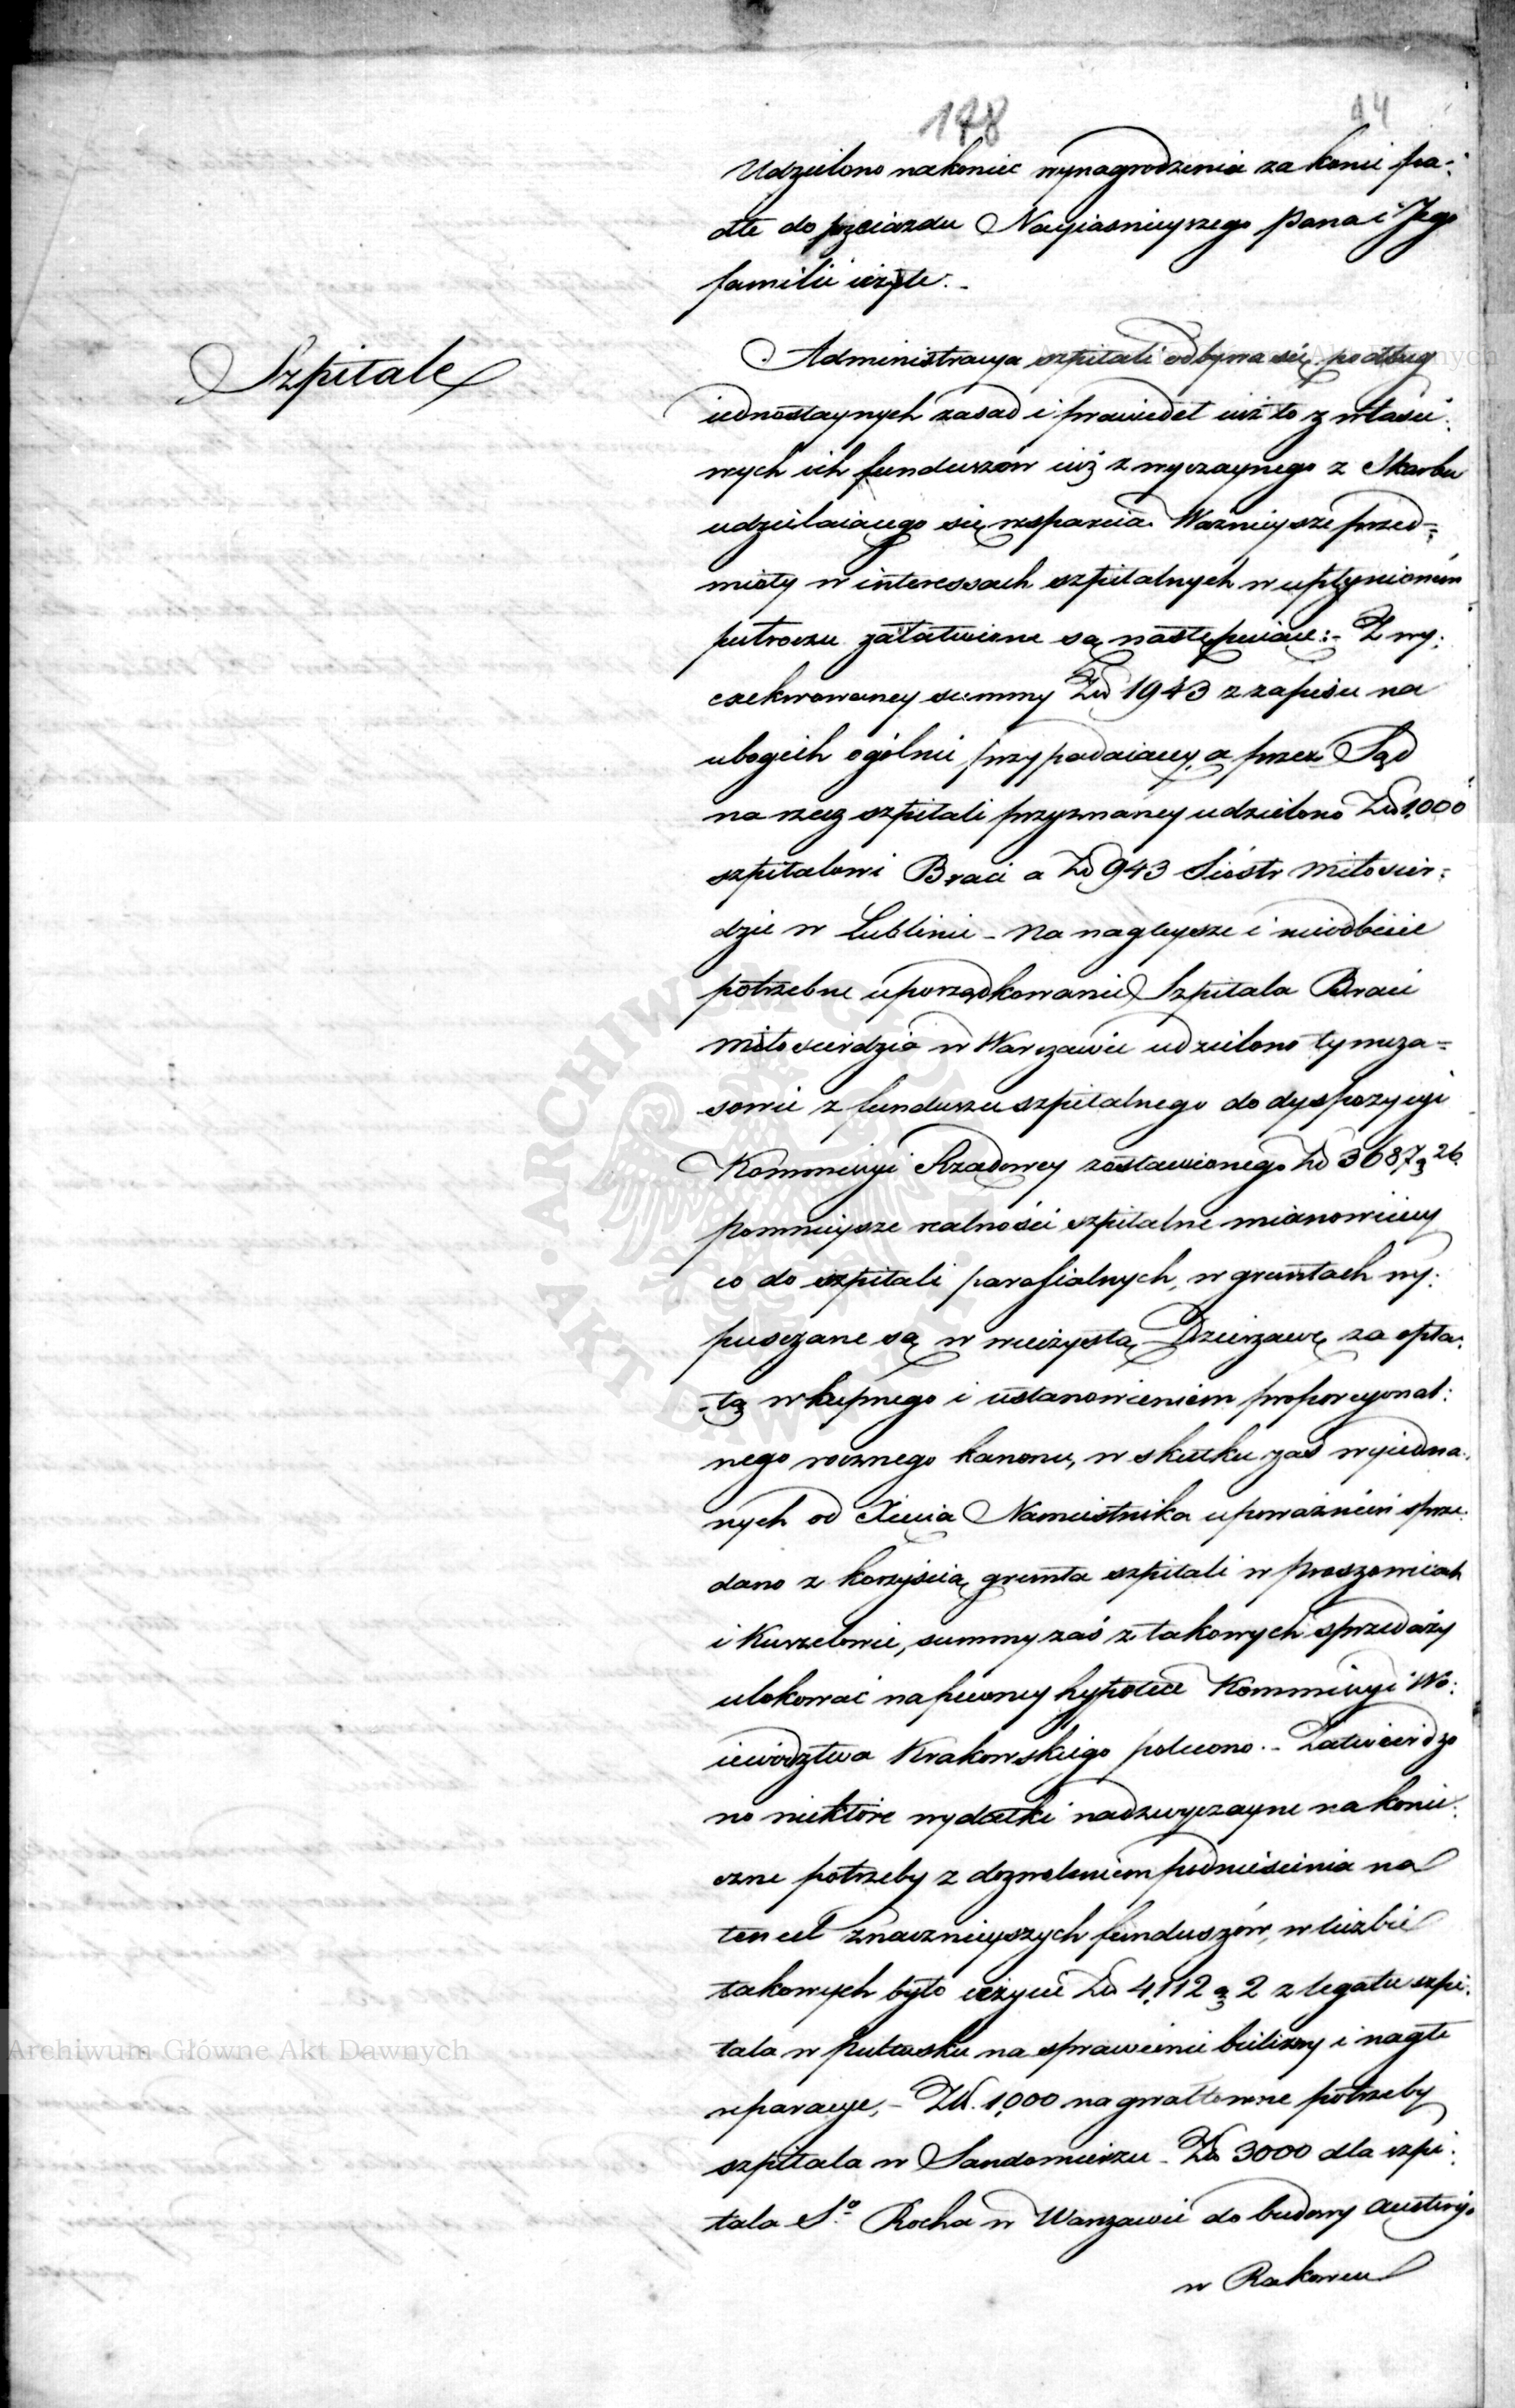 178
14
Udzielono nakoniec wynagrodzenia za konie pa-
dłe do przeiazdu Nayiasnieyszego Pana i Jego
familii użyte.-
Szpitale
Administracya szpitali odbywa się podług
iednostaynych zasad i prawideł iuż to z właści:
wych ich funduszów iuż zwyczaynego z Skarbu
udzielaiącego się wsparcia. Ważnieysze przed=
mioty w interessach szpitalnych w upłynionem
półroczu załatwione są następuiące:- Z wy:
exekwowaney summy Zł 1943 z zapisu na
ubogich ogólnie przypadaiącey, a przez Sąd
na rzecz szpitali przyznaney udzielono Zł 1,000
szpitalowi Braci a Zł 943 Sióstr Miłosier:
dzie w Lublinie - Na nagleysze i nieodbicie
potrzebne uporządkowanie Szpitala Braci
Miłosierdzia w Warszawie udzielono tymcza=
sowie z funduszu szpitalnego do dyspozycyi
Kommissyi Rządowey zostawionego Zł 3687 g 26.
Pomnieysze realności szpitalne mianowiciey
co do szpitali parafialnych, w gruntach wy:
puszczane są w wieczystą Dzierzawę za opła:
-tą wkupnego i ustanowieniem proporcyonal:
nego rocznego kanonu, w skutku zaś wyiedna:
nych od Xięcia Namiestnika upoważnień sprze:
dano z korzyścią grunta szpitali w Proszowicach
i Kurzelowie, summy zaś z takowych sprzedaży
ulokować na pewney hypotece Kommissyi Wo:
iewództwa Krakowskiego polecono.- Zatwierdzo
no niektóre wydatki nadzwyczayne na konie:
czne potrzeby z dozwoleniem podniesienia na
ten cel znacznieyszych funduszów, w liczbie
takowych było użycie Zł 4,112 g 2 z legatu szpi:
tala w Pułtusku na sprawienie bielizny i nagłe
reparacye,- Zł. 1,000 na gwałtowne potrzeby
szpitala w Sandomierzu - Zł 3000 dla szpi:
tala Sº Rocha w Warszawie do budowy Austeryi
w Rakowcu
Archiwum Główne Akt Dawnych
ARCHIWUM GŁÓWNE AKT DAWNYCH